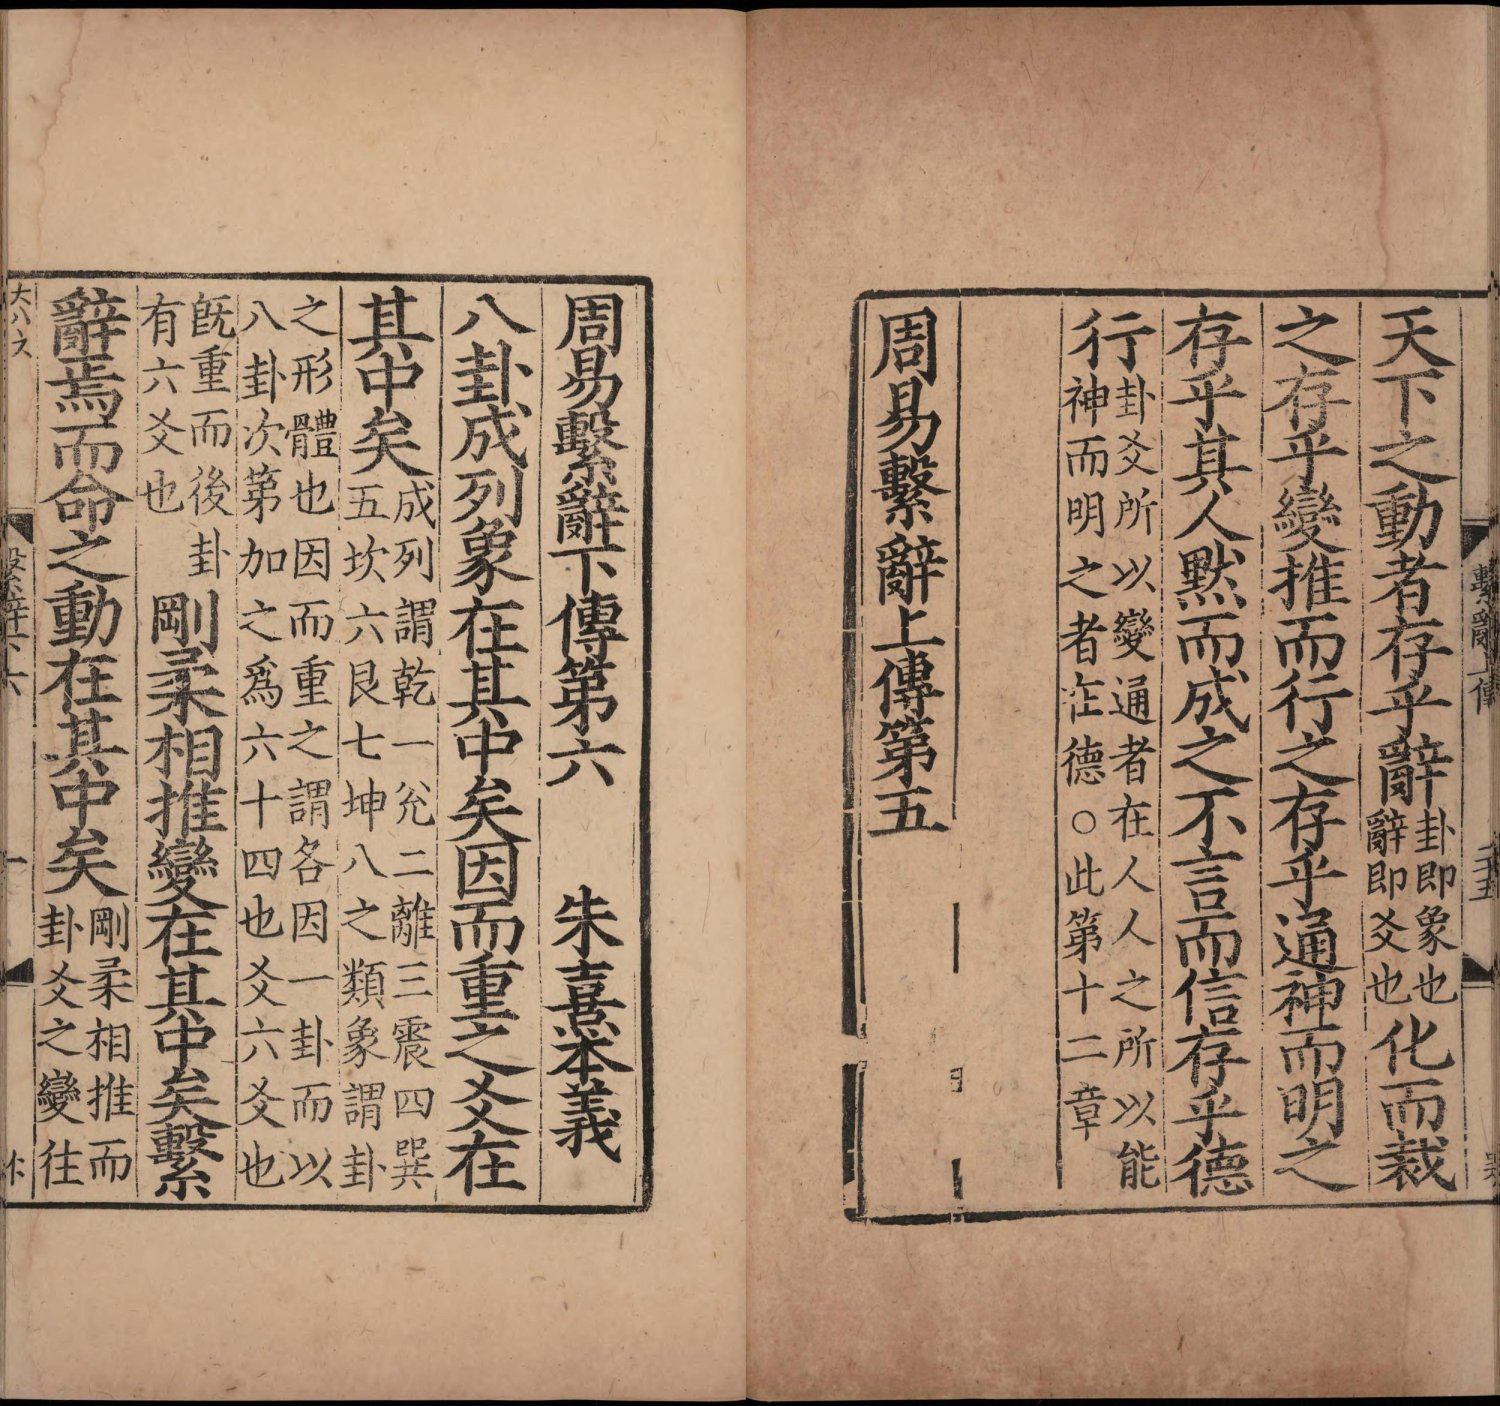 天下之動者存乎辭卦即象也辭即爻也化而裁
之存乎變推而行之存乎通神而明之
存乎其人默而成之不言而信存乎德
行卦爻所以變通者在人人之所以能神而明之者在德○此第十二章
周易繫辭上傳第五
周易繫辭下傳第六 朱熹本義
八卦成列象在其中矣因而重之爻在
其中矣成列謂乾一兊二離三震四巽五坎六艮七坤八之類象謂卦
之形體也因而重之謂各因一卦而以八卦次第加之爲六十四也爻六爻也
旣重而後卦有六爻也剛柔相推變在其中矣繫
辭焉而命之動在其中矣剛柔相推而卦爻之變往